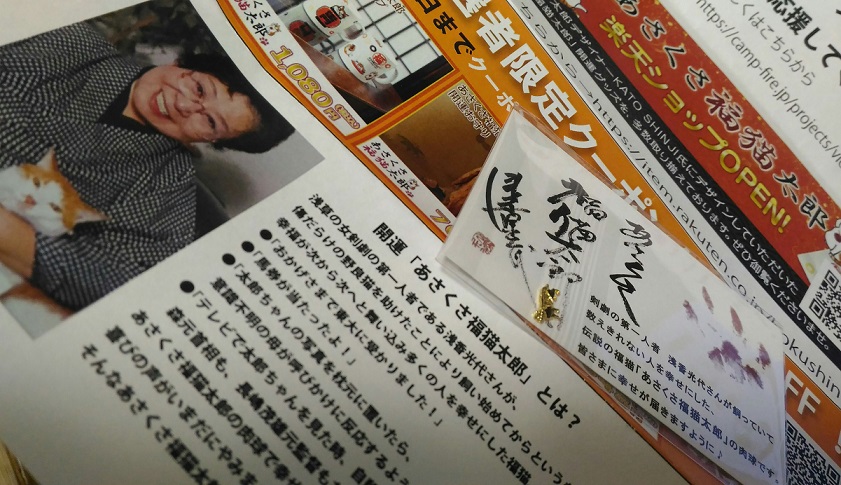 開運「あさくさ福猫太郎」とは？
浅草の女剣劇の第一人者である浅香光代さんが、
傷だらけの野良猫を助けたことにより飼い始めてからというの
幸福が次から次へと舞い込み多くの人を幸せにした福猫
●「おかげさまで東大に受かりました！」
●「馬券が当たったよ！」
●「太郎ちゃんの写真を枕元に置いたら、
意識不明の母が呼びかけに反応するよう
●「テレビで太郎ちゃんを見た時、自
森元首相も、長嶋茂雄元監督も
あさくさ福猫太郎の肉球で幸せ
喜びの声がいまだにやみま
そんなあさくさ福猫太
あさくさ
福猫太郎
1,080円
者限定クーポン
日までクーポ
あさくさ
福猫太郎
応援して
くはこちらから
https://camp-fire.jp/projects/vi
あさくさ福猫太郎
楽天ショップOPEN!
デザイナーKATO SHINJI氏にデザインしていただいた
開運グッズを、多数取り揃えております。ぜひ御覧くださいませ。
https://item.rakuten.co.jp/
福猫
剣劇の第一人者 浅香光代さんが飼っていて
数えきれない人を幸せにした、
伝説の福猫「あさくさ福猫太郎」の肉球です。
皆さまに幸せが届きますように♪
FF